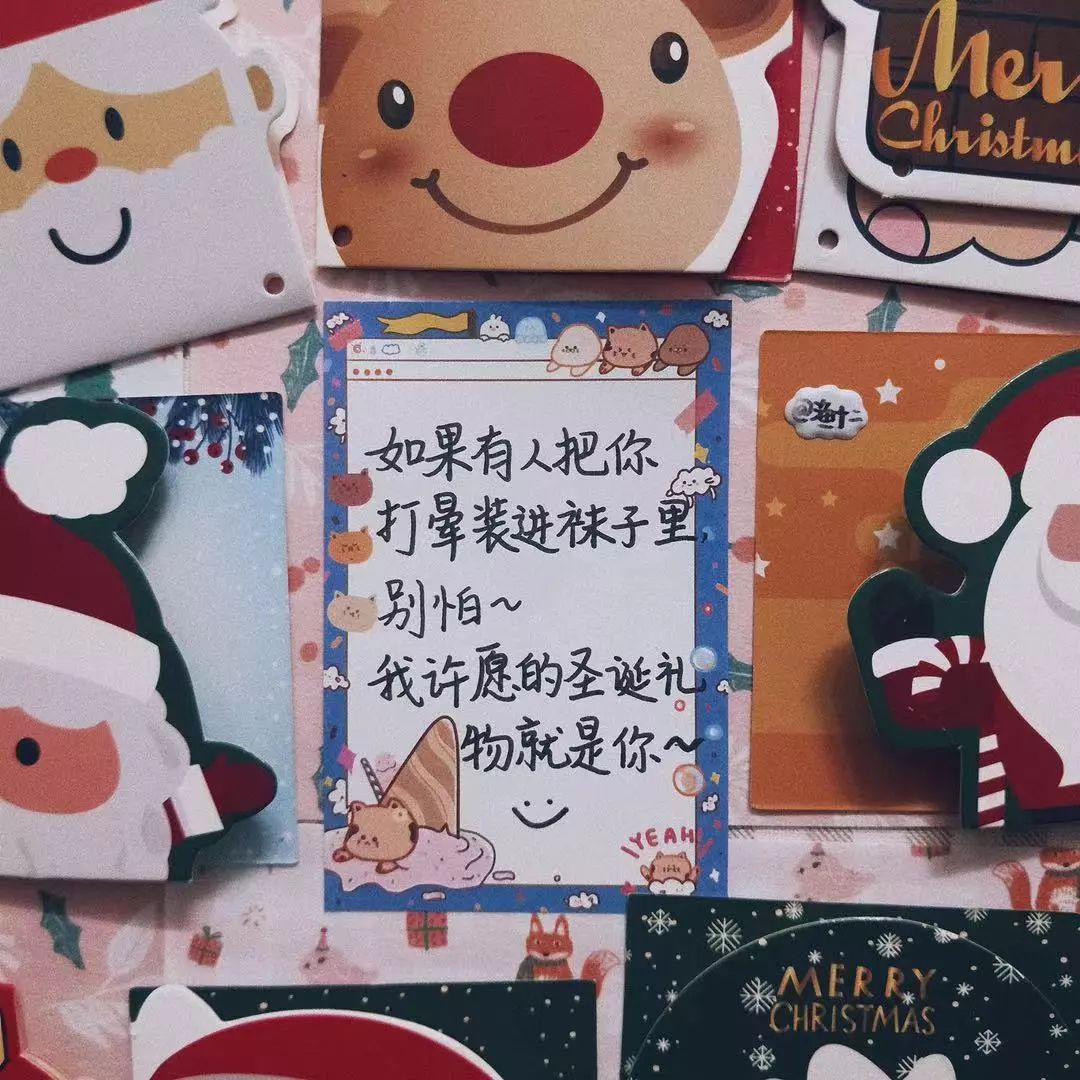 Merry
Christmas
如果有人把你
打晕装进袜子里,
别怕~
我许愿的圣诞礼
物就是你~
YEAH!
MERRY
CHRISTMAS